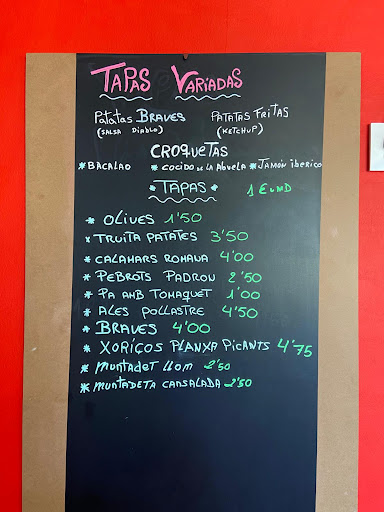 TAPAS VARIADAS
Patatas BRAVES PATATAS FRITAS
(SALSA DIABLO) (KETCHUP)
CROQUETAS
*BACALAO *COCIDO DE LA ABUELA *JAMÓN IBERICO
*TAPAS* 1€UND
* OLIVES 1'50
* TRUITA PATATES 3'50
* CALAMARS ROMANA 4'00
* PEBROTS PADRON 2'50
* PA AMB TOMAQUET 1'00
* ALES POLLASTRE 4'50
* BRAVES 4'00
* XORIÇOS PLANXA PICANTS 4'75
* MUNTADET LLOM 2'50
* MUNTADETA CANSALADA 2'50